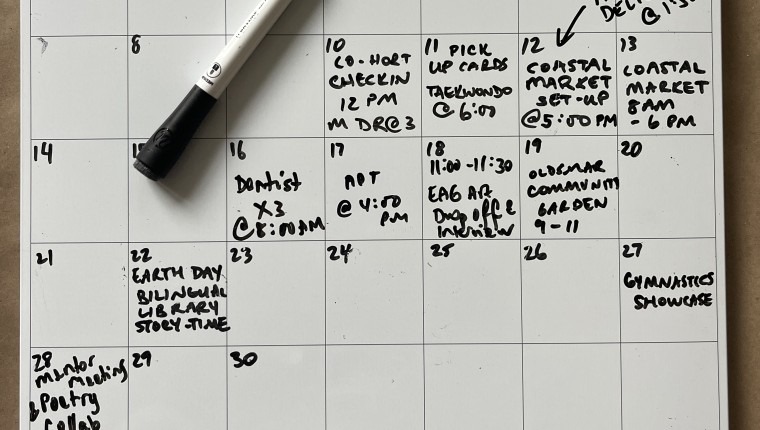 DEL
@ 1:30
7
8
10
CO-HORT
CHECKIN
12 PM
M DR@3
11 PICK
UP CARDS
TAEKWONDO
@ 6:00
12
COASTAL
MARKET
SET-UP
@5:00PM
13
COASTAL
MARKET
8AM
- 6 PM
14
15
16
Dentist
X3
@8:00AM
17
APT
@ 4:00
PM
18
11:00-11:30
Drop off &
Interview
19
OLDSMAR
COMMUNITY
GARDEN
9-11
20
21
22
EARTH DAY
BILINGUAL
LIBRARY
STORY-TIME
23
24
25
26
27
GYMNASTICS
SHOWCASE
28
Mentor
Meeting
& Poetry
Collab
29
30